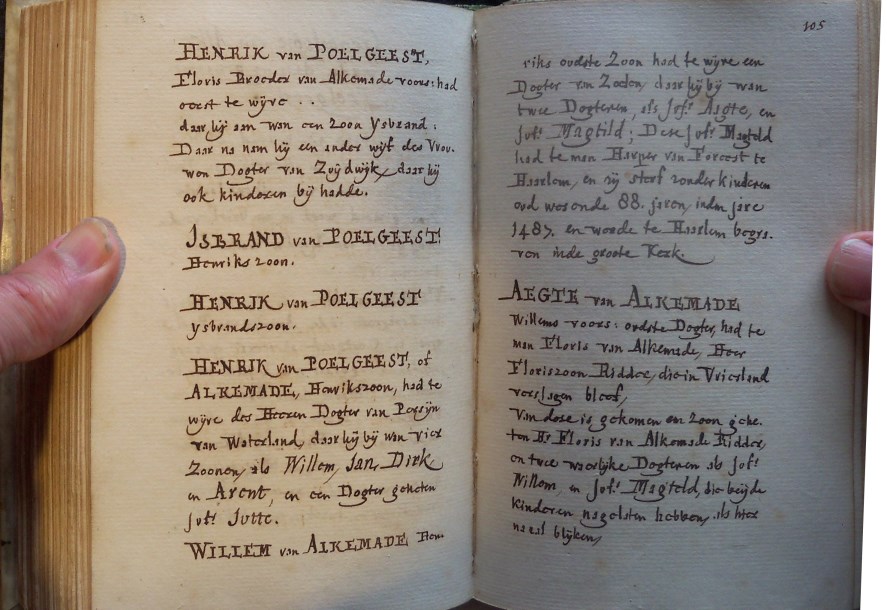 HENRIK van POELGEEST,
Floris Broeder van Alkemade voors: had
eerst te wijve . .
daar hij aan wan een zoon Ysbrand :
Daar na nam hij een ander wijf des Vrou.
wen Dogter van Zuydwijk, daar hij
ook kinderen bij hadde.
ISBRAND van POELGEEST
Henriks zoon.
HENRIK van POELGEEST
ysbrandszoon.
HENRIK van POELGEEST, of
ALKEMADE, Henrikszoon, had te
wijve des Heeren Dogter van Persijn
van Waterland daar hij bij wan vier
Zoonen, als Willem, Jan, Dirk
en Arent, en een Dogter geheten
jofr Jutte.
WILLEM van ALKEMADE Hen.
105
riks oudste Zoon had te wijve een
Dogter van Zoelen, daar hij bij wan
twee Dogteren, als jofr Aegte, en
jofr Magtild; Dese jofr Magteld
had te man Harper van Foreest te
Haarlem, en zij sterf zonder kinderen
oud wesende 88. jaren, inden jare
1487. en werde te Haarlem begra.
ven inde groote Kerk.
AEGTE van ALKEMADE
Willems voors: oudste Dogter, had te
man Floris van Alkemade, Heer
Floriszoon Ridder, die in Vriesland
verslagen bleef,
Van dese is gekomen een zoon gehe.
ten Hr Floris van Alkemade Ridder,
en twee Dogteren als jofr
Willem, en jofr Magteld, die beijde
kinderen nagelaten hebben, als hier
na sal blijken,